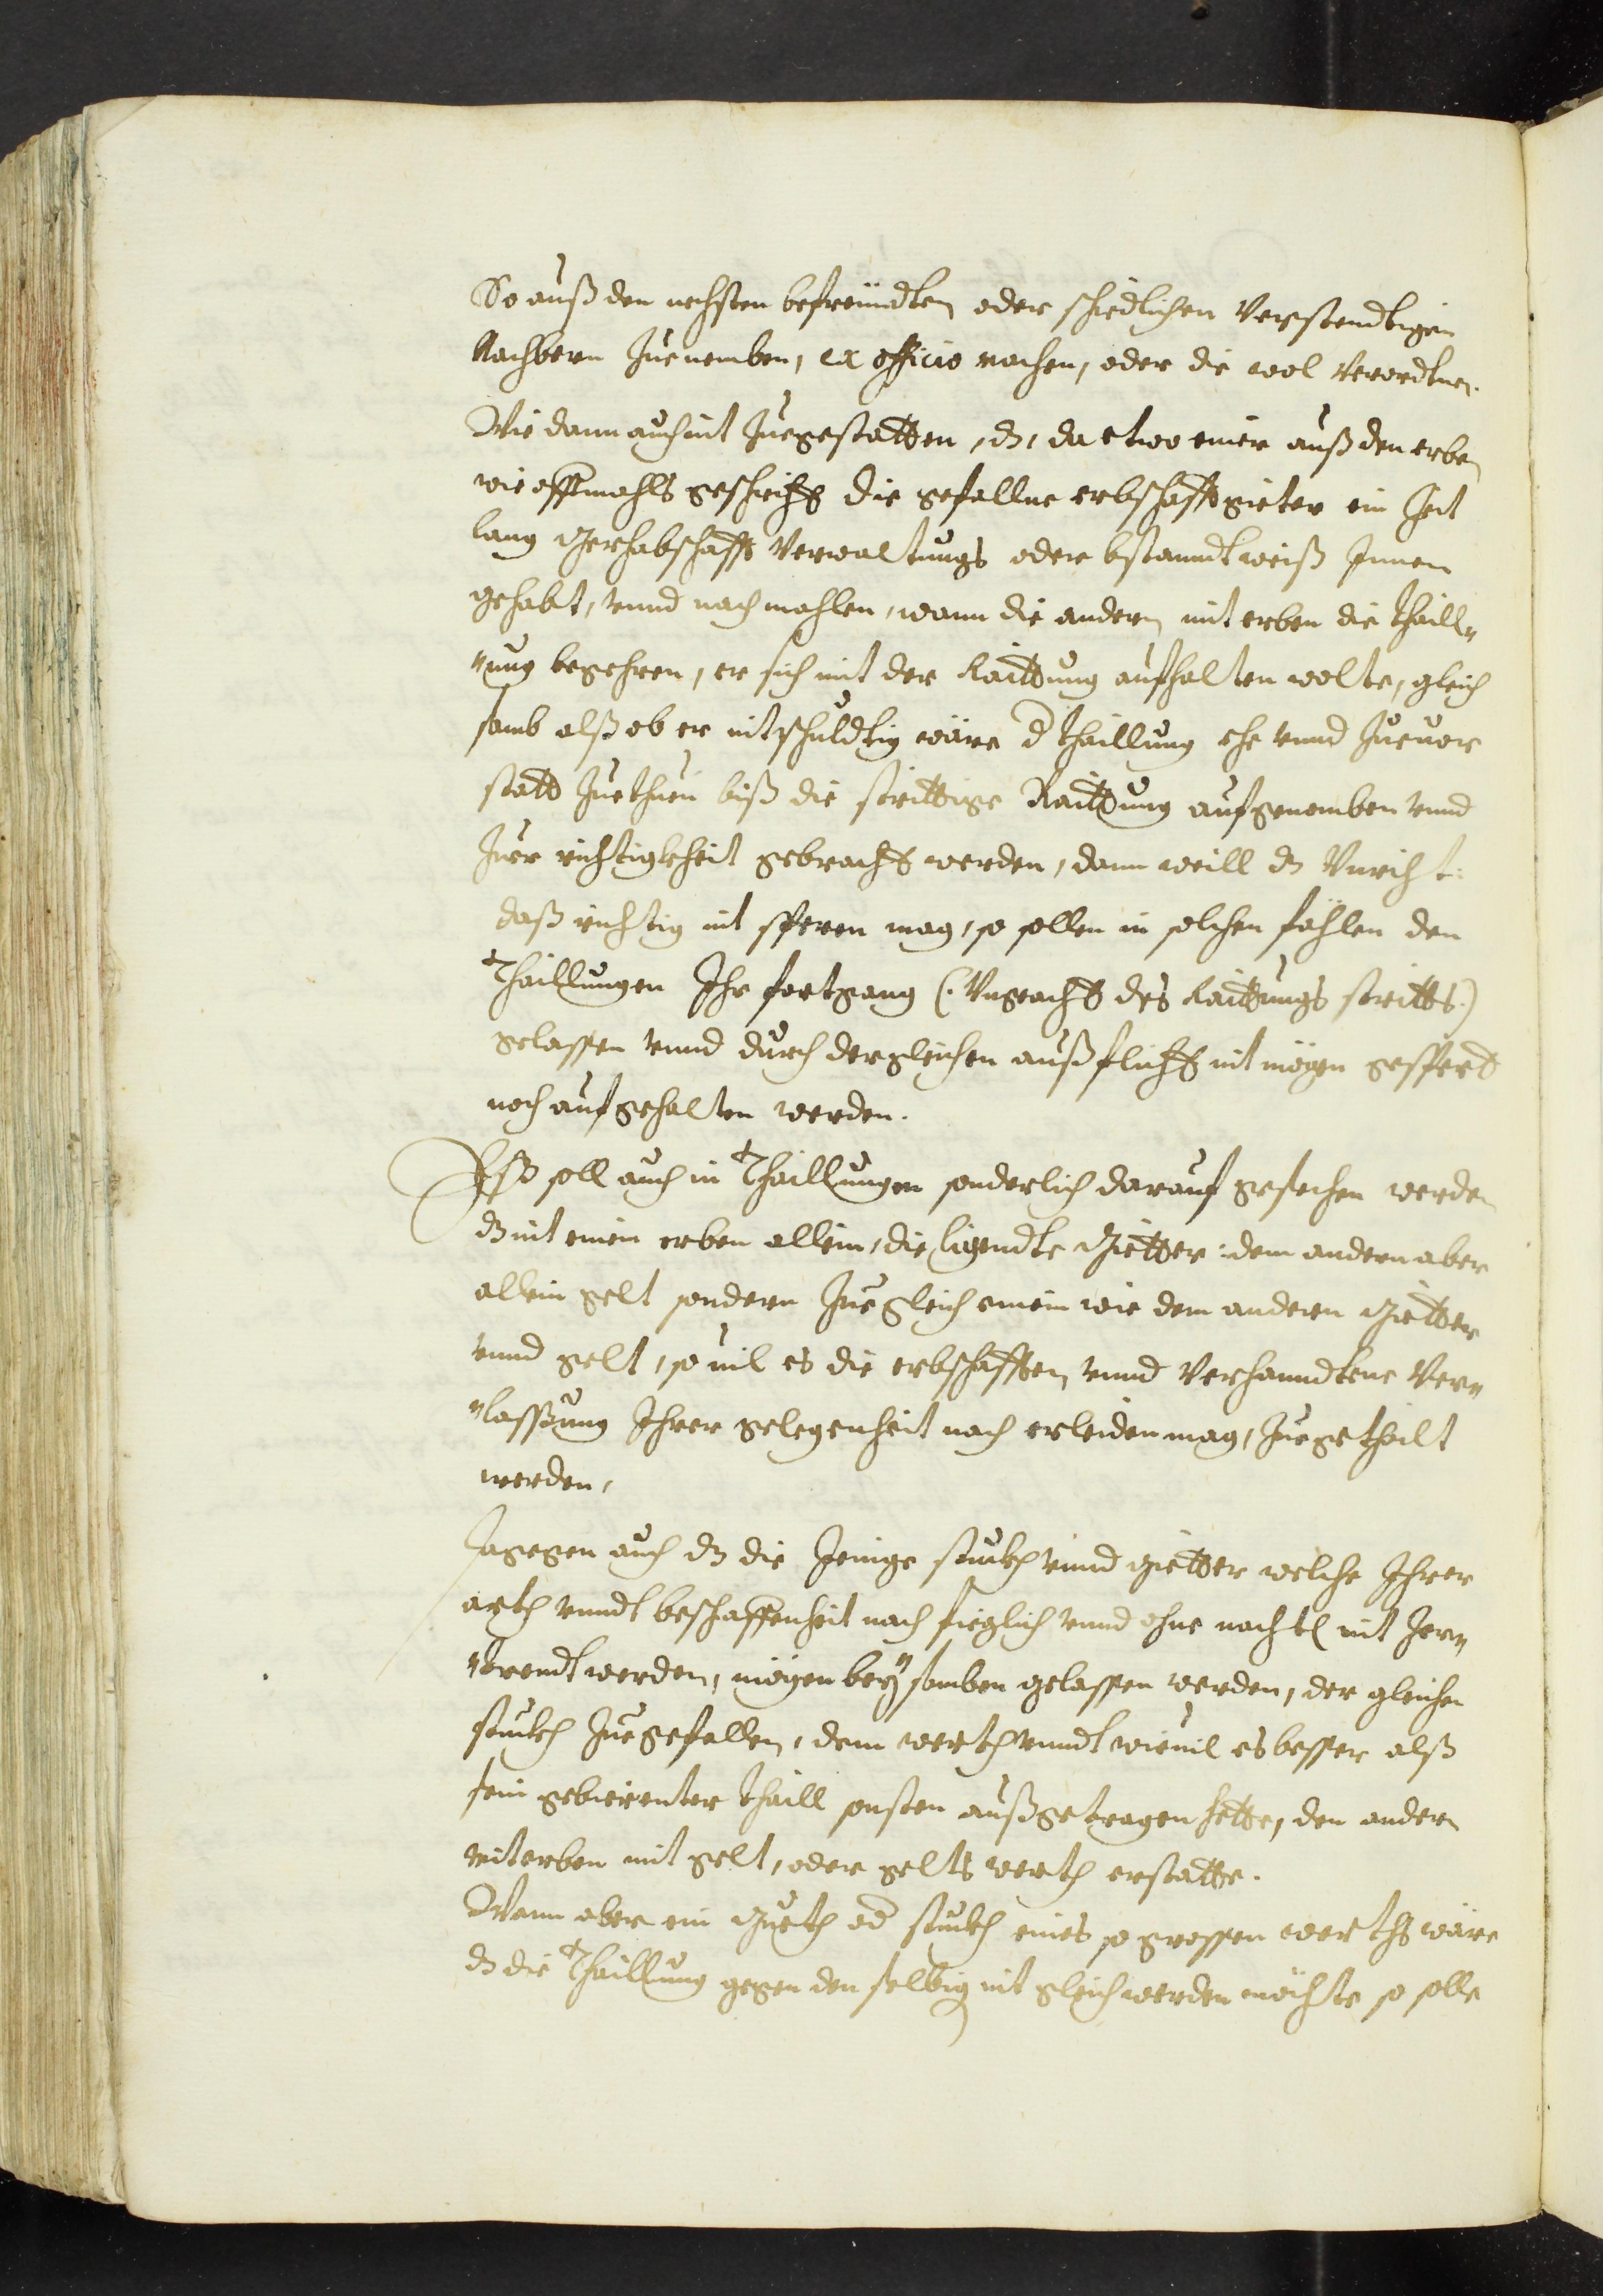 So auß den nechsten befreündten oder schidlichen Verstendtigen
Nachbern Zuenemben, ex officio machen, oder die wol Verordtnen.
Wie dann auch nit Zuegestatten, dz, da etwo einer auß den erben
wie offtmahls geschicht die gefallne erbschafftgüeter ein Zeit
lang Gerhabschafft Verwaltungs oder bstanndtweiß Innen
gehabt, vnnd nachmahlen, wann die andern mit erben die thaill„
„ung begehren, er sich mit der Raittung aufhalten wolte, gleich
samb alß ob er nit schuldtig wäre d thaillung ehe vnnd Zuuor
statt Zuethuen biß die strittige Raittung aufgenomben vnnd
Zuer richtigkheit gebracht werden, dann weill dz Vnricht:
daß richtig nit sperren mag, so sollen in solchen fählen den
Thaillungen Ihr fortgang (: Vngeacht des Raittungs stritts :)
gelassen vnnd durch dergleichen außflicht nit mögen gespert
noch aufgehalten werden.
Eß soll auch in Thaillungen sonderlich darauf gesechen werden
dz nit einem erben allein, die ligendte Güetter: dem andern aber
allein gelt sondern Zuegleich einem wie dem andern Güetter
vnnd gelt, so uil es die erbschafften vnnd Verhanndtene Ver„
„lassung Ihrer gelegenheit nach erleiden mag, Zuegethailt
werden,
Hagegen auch dz die Jenige stuckh vnnd güetter welche Ihrer
arth vnndt beschaffenheit nach füeglich vnnd ohne nachtl nit Zer„
„trendt werden, mögen beysamben gelassen werden, der gleichen
stuckh Zuegefallen, dem werth vnndt wieuil es besser alß
sein gebierenter thaill sonsten außgetragen hette, den andern
miterben mit gelt, oder gelts werth erstatte.
Wann aber ein Gueth od stuckh eines so grossen werths wäre
dz die Thaillung gegen den selbig nit gleich werden möchte so solle